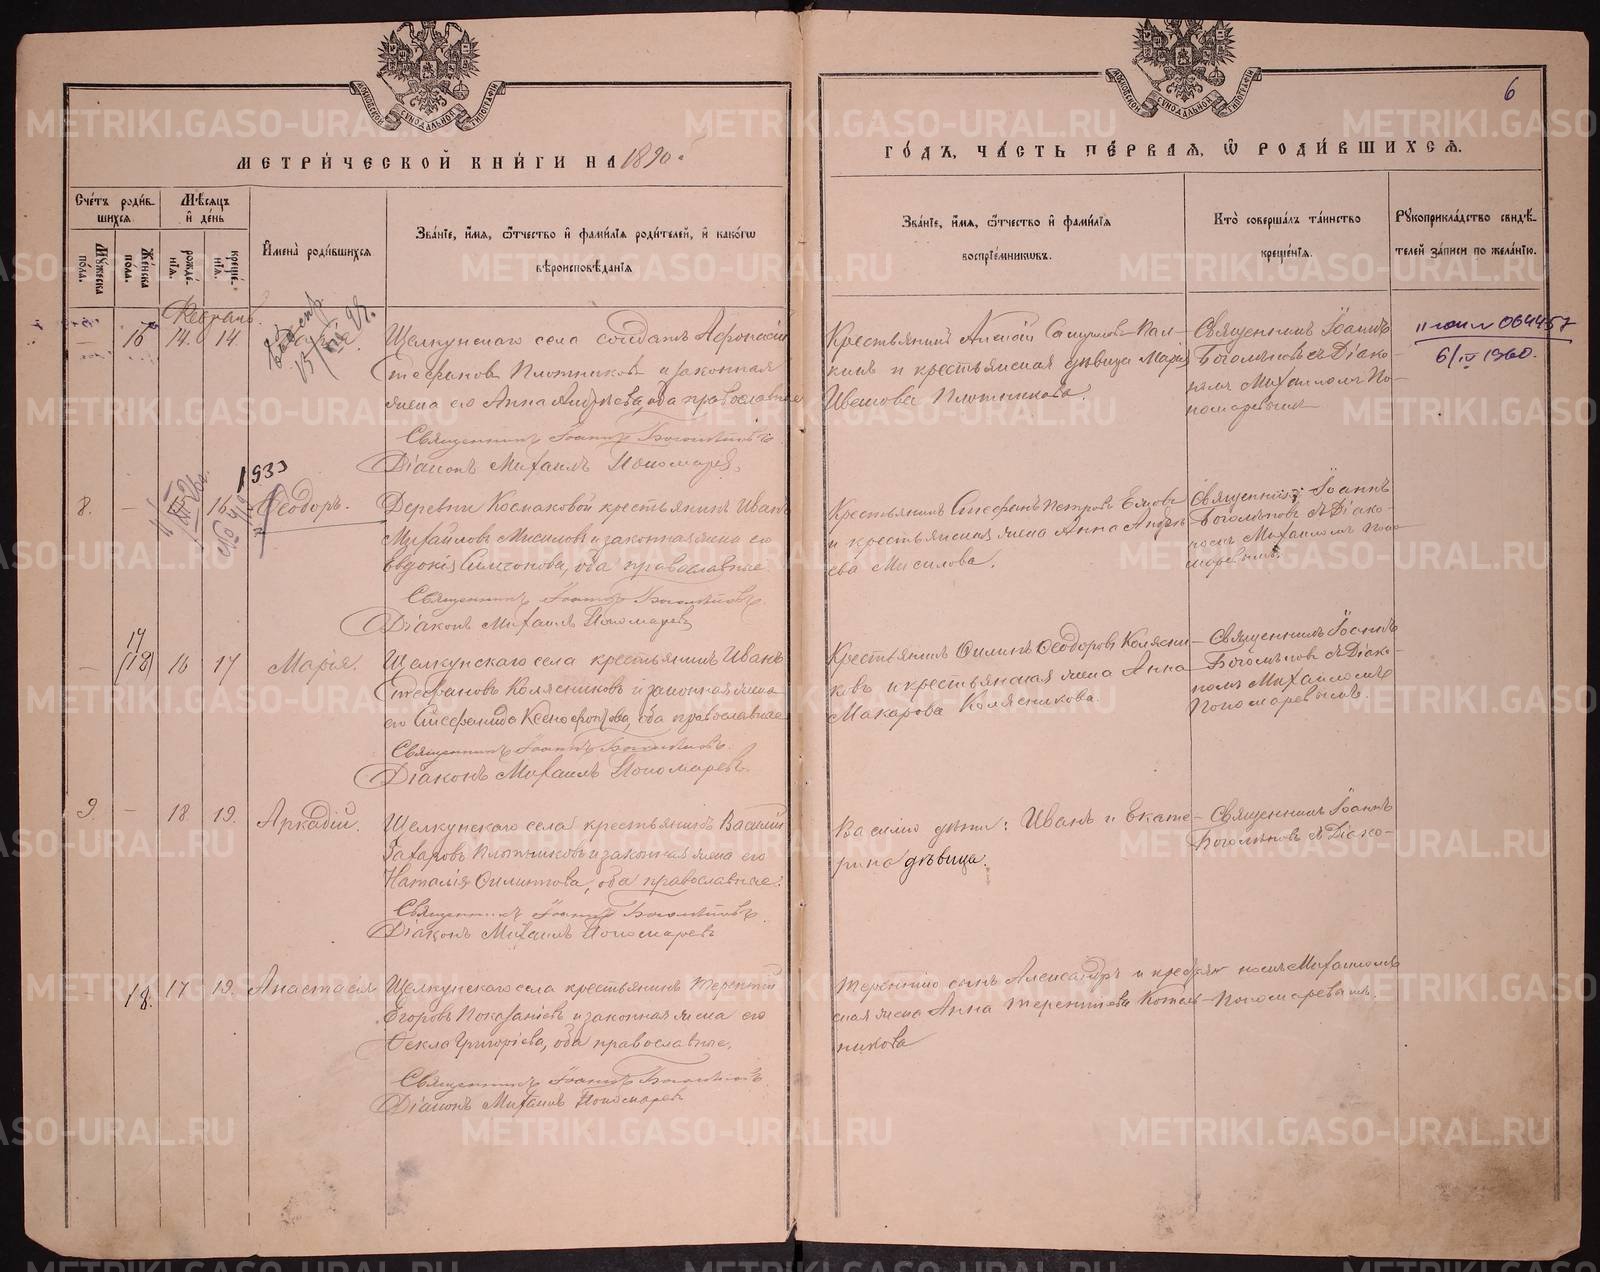 МЕТРИЧЕСКОЙ КНИГИ НА 1890
ГОДЪ, ЧАСТЬ ПЕРВАЯ, Ѿ РОДИВШИХСЯ.
6
Счетъ родившихся
Мужеска пола.
Женска пола.
Мѣсяцъ и день
рожденія.
крещенія.
Имена родившихся
Званіе, имя, ѿтчество и фамилія родителей, и какогѡ
вѣроисповѣданія
Званіе, имя, ѿтчество и фамилія
воспріемниковъ.
Кто совершалъ таинство
крещенія.
Рукоприкладство свидѣтелей записи по желанію.
Февраль
16 14. 14
Щелкунскаго села солдатъ Афонасій
Стефановъ Плотниковъ и законная
жена его Анна Андреева, оба православные
Священникъ Іоаннъ Боголѣповъ
Діаконъ Михаилъ Пономаревъ.
Крестьянинъ Алексѣй
и крестьянская дѣвица Марія
Ивенова Плотникова.
Священникъ Іоаннъ
Боголѣповъ съ Діако-
номъ Михаиломъ По-
номаревымъ
064457
6/IV 1960.
1933
8. — 16 Ѳеодоръ.
Деревни Космаковой крестьянинъ Иванъ
Михайловъ Мисиловъ и законная жена его
Евдокія Симеонова, оба православные
Священникъ Іоаннъ Боголѣповъ
Діаконъ Михаилъ Пономаревъ
Крестьянинъ Стефанъ Петровъ
и крестьянская жена Анна Андре-
ева Мисилова.
Священникъ Іоаннъ
Боголѣповъ съ Діако-
номъ Михаиломъ Поно-
маревымъ.
— 17 (18) 16 17 Марія.
Щелкунскаго села крестьянинъ Иванъ
Стефановъ Колясниковъ и законная жена
его Стефанида Ксенофонтова, оба православные
Священникъ Іоаннъ Боголѣповъ.
Діаконъ Михаилъ Пономаревъ.
Крестьянинъ Филипъ Ѳеодоровъ Колясни-
ковъ и крестьянская жена Анна
Макарова Колясникова.
Священникъ Іоаннъ
Боголѣповъ съ Діако-
номъ Михаиломъ
Пономаревымъ.
9. — 18 19. Аркадій.
Щелкунскаго села крестьянинъ Василій
Захаровъ Плотниковъ и законная жена его
Наталія Филиппова, оба православные.
Священникъ Іоаннъ Боголѣповъ
Діаконъ Михаилъ Пономаревъ
Василія дѣти: Иванъ и Екате-
рина дѣвица.
Священникъ Іоаннъ
Боголѣповъ съ Діако-
18. 17 19. Анастасія
Щелкунскаго села крестьянинъ Терентій
Егоровъ Показаніевъ и законная жена его
Ѳекла Григоріева, оба православные.
Священникъ Іоаннъ Боголѣповъ
Діаконъ Михаилъ Пономаревъ
Терентія сынъ Александръ и крестьян-
ская жена Анна Терентіева Котель-
никова
номъ Михаиломъ
Пономаревымъ.
METRIKI.GASO-URAL.RU